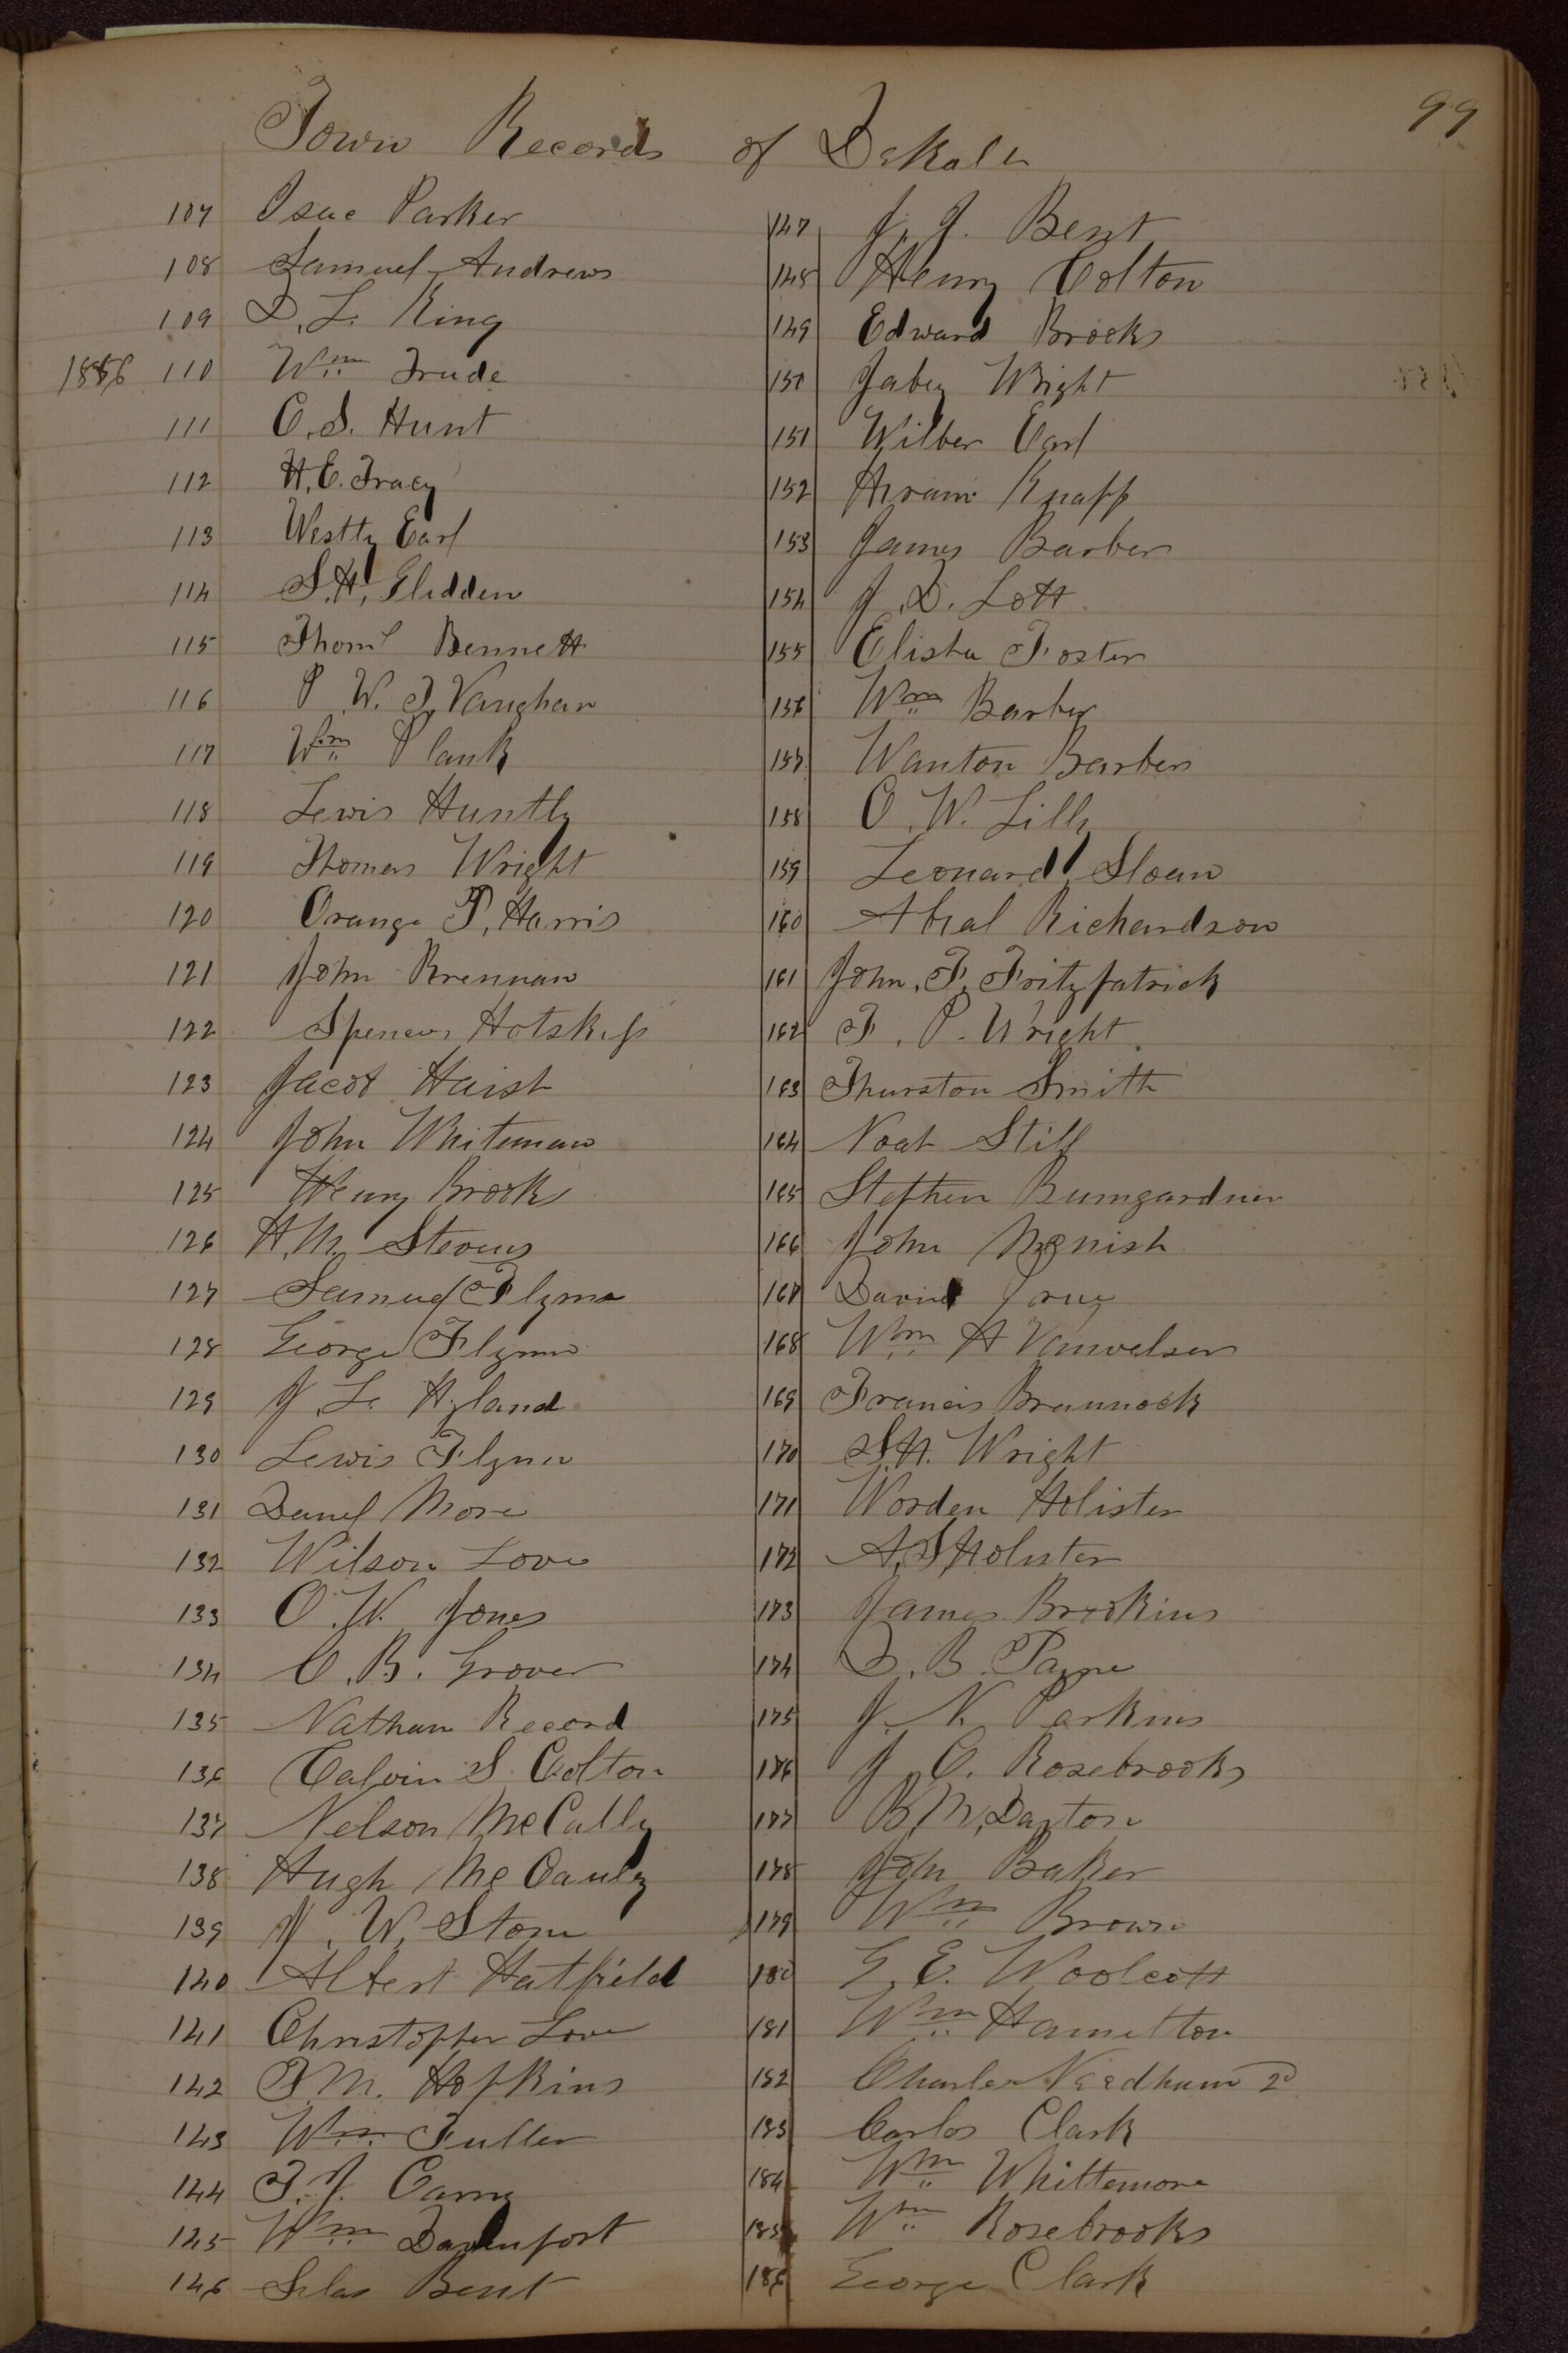 99
Town Records of DeKalb
107 Isac Parker
108 Samuel Andrews
109 D. L. King
1856 110 Wm Trude
111 C. S. Hunt
112 H. E. Tracy
113 Westly Earl
114 S. H. Glidden
115 Thoms Bennett
116 P. W. T. Vaughan
117 Wm Plank
118 Lewis Huntly
119 Thomas Wright
120 Orange P. Harris
121 John Brennan
122 Spencer Hotskiss
123 Jacob Haish
124 John Whiteman
125 Henry Brooks
126 H. M. Stevens
127 Samuel Flynn
128 George Flynn
129 J. L. Hyland
130 Lewis Flynn
131 Danel More
132 Wilson Love
133 O. W. Jones
134 C. B. Grover
135 Nathan Record
136 Calvin S. Colton
137 Nelson McCally
138 Hugh McCauley
139 J. W. Stone
140 Albert Hatfield
141 Christopher Love
142 T. M. Hopkins
143 Wm Fuller
144 T. J. Carny
145 Wm Davenport
146 Silas Bent
147 J. J. Bent
148 Henry Colton
149 Edward Brooks
150 Jabez Wright
151 Wilber Earl
152 Hiram Knapp
153 James Barber
154 J. D. Lott
155 Elisha Foster
156 Wm Barber
157 Wanton Barber
158 O. W. Lilly
159 Leonard Sloan
160 Abial Richardson
161 John F. Fritzpatrick
162 F. P. Wright
163 Thurston Smith
164 Noah Still
165 Stephen Bumgardner
166 John McNish
167 David
168 Wm H Vanvelser
169 Francis Brannock
170 S. H. Wright
171 Worden Holister
172 A. S. Holister
173 James Brookins
174 D. B. Payne
175 J. N. Perkins
176 J. C. Rosebrooks
177 B. M. Dayton
178 John Baker
179 Wm Brown
180 G. E. Woolcott
181 Wm Hamelton
182 Charles Needham 2d
183 Carlos Clark
184 Wm Whittemore
185 Wm Rosebrooks
186 George Clark